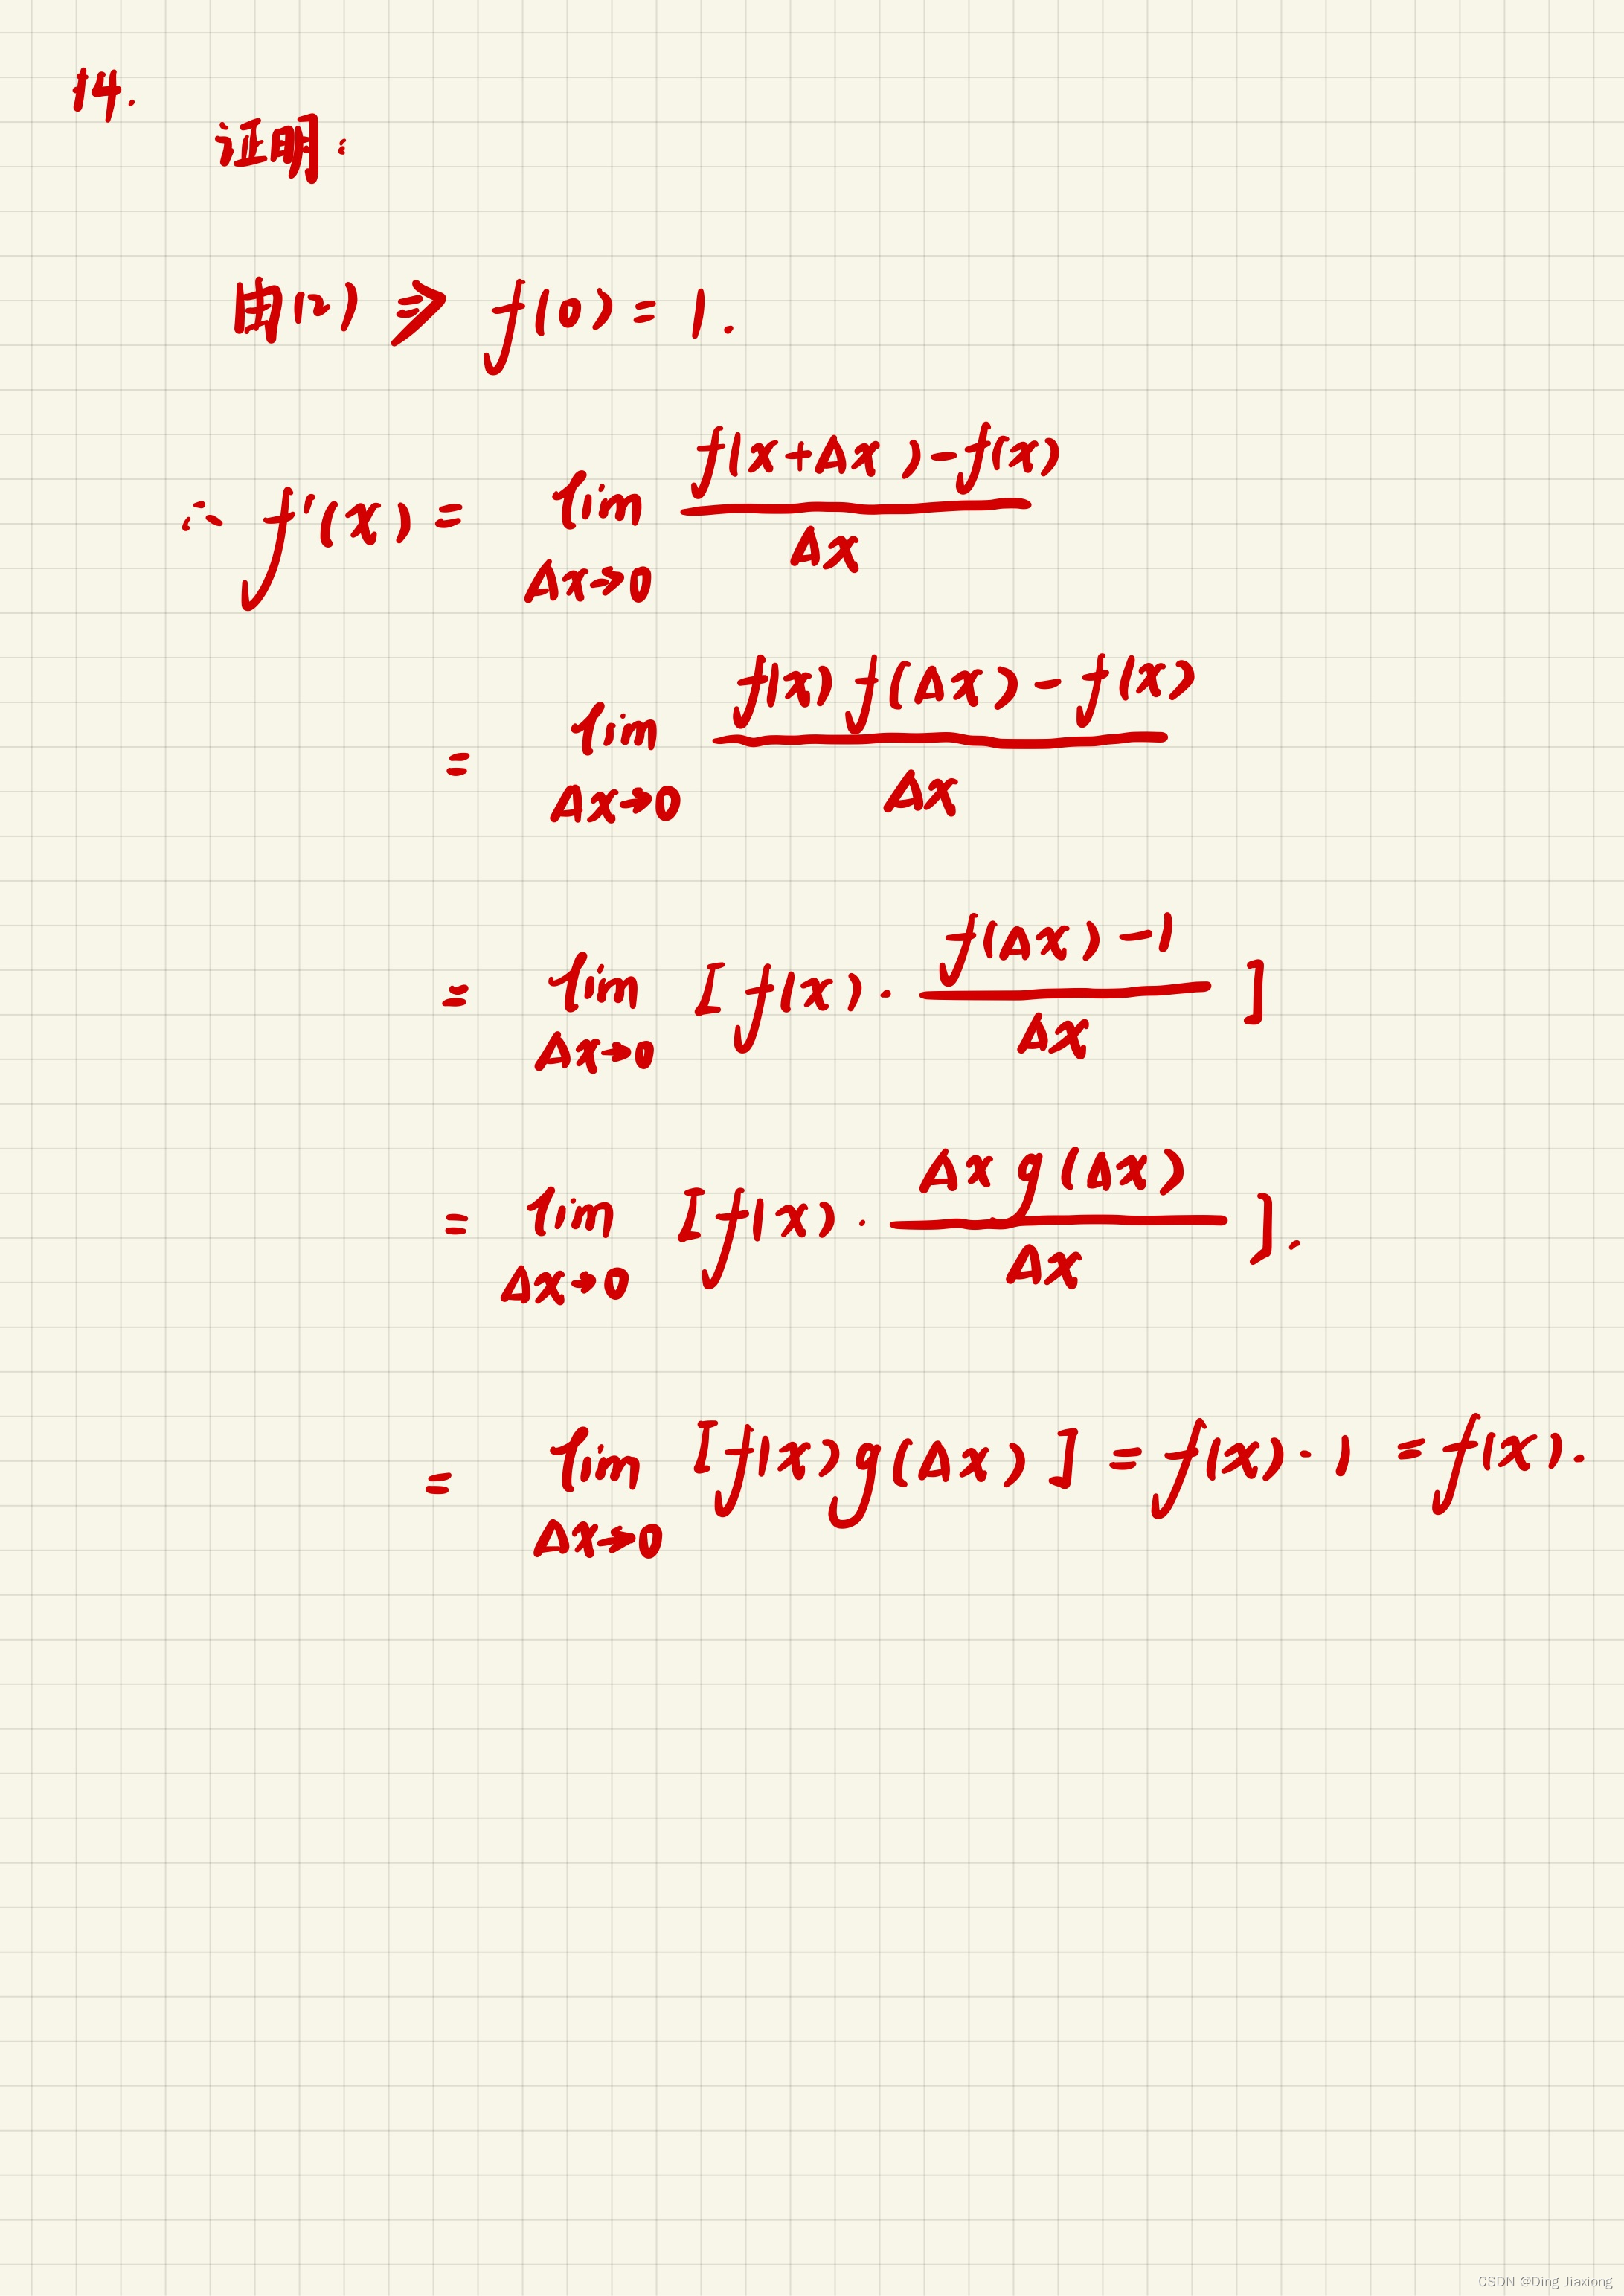 14.
证明:
由(2) ⇒ f(0) = 1.
∴ f'(x) = lim_{Δx→0} \frac{f(x+Δx) - f(x)}{Δx}
= lim_{Δx→0} \frac{f(x)f(Δx) - f(x)}{Δx}
= lim_{Δx→0} [f(x)·\frac{f(Δx) - 1}{Δx}]
= lim_{Δx→0} [f(x)·\frac{Δx g(Δx)}{Δx}].
= lim_{Δx→0} [f(x)g(Δx)] = f(x)·1 = f(x).
CSDN @Ding Jiaxiong